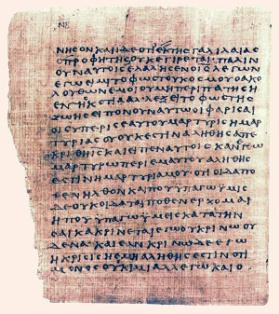 ΝΗϹΟΝ ΚΑΙ ΙΔΕ ΟΤΙ ΕΚ ΤΗϹ ΓΑΛΙΛΑΙΑϹ
Ο ΠΡΟΦΗΤΗϹ ΟΥΚ ΕΓΕΙΡΕΤΑΙ ΠΑΛΙΝ
ΟΥΝ ΑΥΤΟΙϹ ΕΛΑΛΗϹΕΝ Ο ΙϹ ΛΕΓΩΝ
ΕΓΩ ΕΙΜΙ ΤΟ ΦΩϹ ΤΟΥ ΚΟϹΜΟΥ Ο ΑΚΟ
ΛΟΥΘΩΝ ΕΜΟΙ ΟΥ ΜΗ ΠΕΡΙΠΑΤΗϹΗ
ΕΝ ΤΗ ϹΚΟΤΙΑ ΑΛΛ ΕΞΕΙ ΤΟ ΦΩϹ ΤΗϹ
ΖΩΗϹ ΕΙΠΟΝ ΟΥΝ ΑΥΤΩ ΟΙ ΦΑΡΙϹΑΙ
ΟΙ ϹΥ ΠΕΡΙ ϹΕΑΥΤΟΥ ΜΑΡΤΥΡΙϹ Η ΜΑΡ
ΤΥΡΙΑ ϹΟΥ ΟΥΚ ΕϹΤΙΝ ΑΛΗΘΗϹ ΑΠΕ
ΚΡΙΘΗ ΙϹ ΚΑΙ ΕΙΠΕΝ ΑΥΤΟΙϹ ΚΑΝ ΕΓΩ
ΜΑΡΤΥΡΩ ΠΕΡΙ ΕΜΑΥΤΟΥ ΑΛΗΘΗϹ
ΕϹΤΙΝ Η ΜΑΡΤΥΡΙΑ ΜΟΥ ΟΤΙ ΟΙΔΑ ΠΟ
ΘΕΝ ΗΛΘΟΝ ΚΑΙ ΠΟΥ ΥΠΑΓΩ ΥΜΙϹ
ΔΕ ΟΥΚ ΟΙΔΑΤΑΙ ΠΟΘΕΝ ΕΡΧΟΜΑΙ
Η ΠΟΥ ΥΠΑΓΩ ΥΜΙϹ ΚΑΤΑ ΤΗΝ
ϹΑΡΚΑ ΚΡΙΝΕΤΑΙ ΕΓΩ ΟΥ ΚΡΙΝΩ ΟΥ
ΔΕΝΑ ΚΑΙ ΕΑΝ ΚΡΙΝΩ ΔΕ ΕΓΩ
Η ΚΡΙϹΙϹ Η ΕΜΗ ΑΛΗΘΗϹ ΕϹΤΙΝ ΟΤΙ
ΜΟΝΟϹ ΟΥΚ ΕΙΜΙ ΑΛΛ ΕΓΩ ΚΑΙ Ο